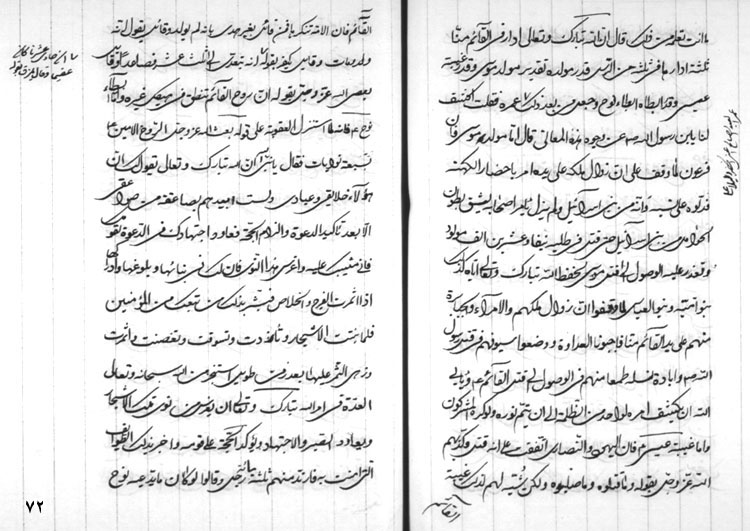 ما انت تعلم من ذلك قال ان الله تبارك وتعالى ادار في القائم منّا
ثلثة ادارها في ثلثة من الرسل قدر مولده تقدير مولد موسى وقدر غيبته
عيسى وقدر ابطاه ابطاء نوح وجعل من بعد ذلك عمره فقلت اكشف
لنا يابن رسول الله عن وجوه هذه المعاني قال اما مولد موسى فان
فرعون لما وقف على ان زوال ملكه على يده امر باحضار الكهنة
فدلوه على نسبه وانه من بني اسرائيل ولم يزل يامر اصحابه بشق بطون
الحوامل من بني اسرائيل حتى قتل في طلبه نيفا وعشرين الف مولود
وتعذر عليه الوصول الى قتل موسى بحفظ الله تبارك وتعالى اياه كذلك
بنو امية وبنو العباس لما وقفوا ان زوال ملكهم والامراء والجبابرة
منهم على يد القائم منا ناصبونا العداوة ووضعوا سيوفهم في قتل رسول
الله وابادة نسله طمعا منهم في الوصول الى قتل القائم ويابى
الله ان يكشف امره لواحد من الظلمة الى ان يتم نوره ولو كره المشركون
واما غيبة عيسى فان اليهود والنصارى اتفقت على انه قتل وكذبهم
الله عز وجل بقوله وما قتلوه وما صلبوه ولكن شبه لهم كذلك غيبة
القائم
القائم فان الامة تنكرها فمن قائل بغير هدى بانه لم يولد وقائل يقول انه
ولد ومات وقائل يكفر بقوله انه يتعدى الى ثالث عشر فصاعدا وقائل
يعصي الله عز وجل بقوله ان روح القائم تنطق في هيكل غيره واما ابطاء
نوح فانه لما استنزل العقوبة على قومه بعث الله عز وجل الروح الامين
بسبعة نوايات فقال يا نبي الله ان الله تبارك وتعالى يقول لك ان
هؤلاء خلائقي وعبادي ولست ابيدهم بصاعقة من صواعقي
الا بعد تاكيد الدعوة والزام الحجة فعاود اجتهادك في الدعوة لقومك
فاني مثيبك عليه واغرس هذا النوى فان لك في نباتها وبلوغها وادراكها
اذا اثمرت الفرج والخلاص فبشر بذلك من تبعك من المؤمنين
فلما نبتت الاشجار وتازرت وتسوقت وتغصنت واثمرت
وزهى الثمر عليها بعد زمن طويل استنجز من الله سبحانه وتعالى
العدة فامره الله تبارك وتعالى ان يغرس من نوى تلك الاشجار
ويعاود الصبر والاجتهاد ويؤكد الحجة على قومه واخبر بذلك الطوائف
التي امنت به فارتد منهم ثلثمائة رجل وقالوا لو كان ما يدعيه نوح
٧٢